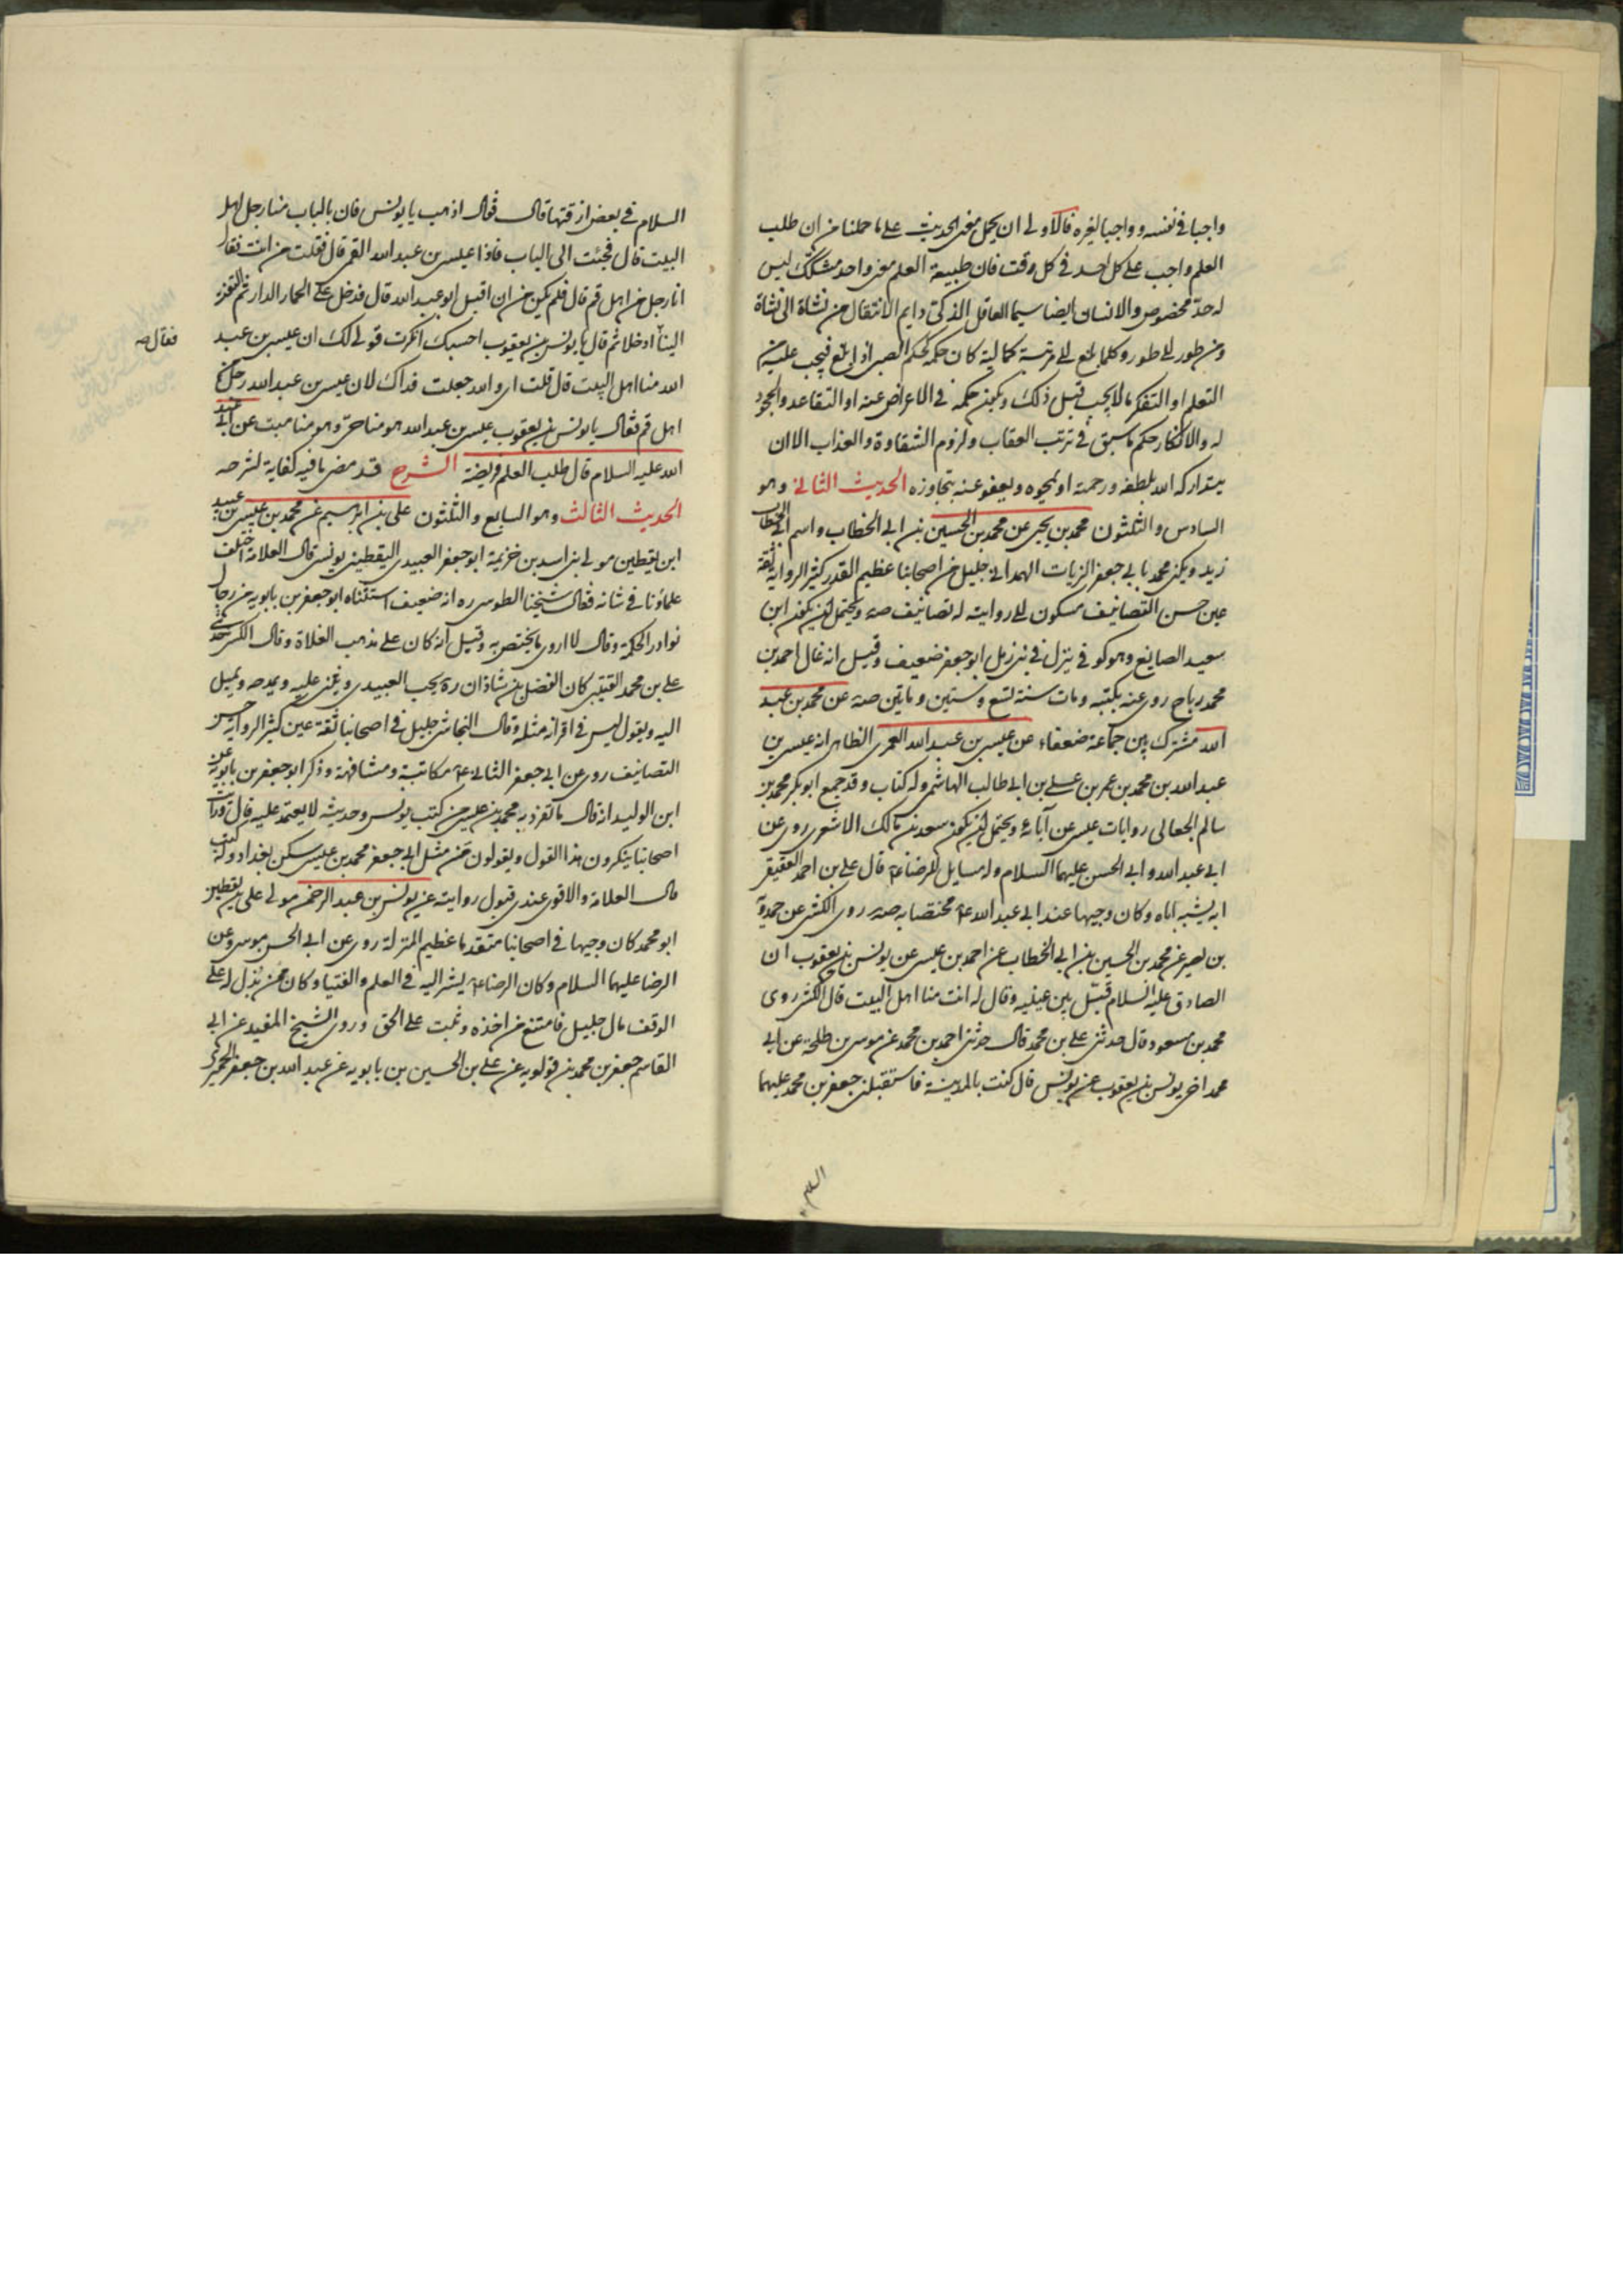 واجبا فى نفسه وواجبا لغيره فالاولى ان يحمل معنى الحديث على ما حملنا من ان طلب
العلم واجب على كل احد فى كل وقت فان طبيعة العلم معنى واحد مشكك ليس
له حدّ مخصوص والانسان ايضا سيما العاقل الذكىّ دايم الانتقال من نشاة الى نشاة
ومن طور الى طور وكلما بلغ الى مرتبة كمالية كان حكمه كحكم الصبى اذا بلغ فيجب عليه من
التعلم او التفكر ما لا يجب قبل ذلك ويكون حكمه فى الاعراض عنه او التقاعد والجحود
له والانكار حكم ما سبق فى ترتب العقاب ولزوم الشقاوة والعذاب الا ان
يتداركه الله بلطفه ورحمته او يمحوه ويعفو عنه بتجاوزه الحديث الثانى وهو
السادس والثلثون محمد بن يحيى عن محمد بن الحسين بن ابى الخطاب واسم ابى الخطاب
زيد ويكنى محمد بابى جعفر الزيات الهمدانى جليل من اصحابنا عظيم القدر كثير الرواية ثقة
عين حسن التصانيف مسكون الى روايته له تصانيف صه ويحتمل ان يكون ابن
سعيد الصايغ وهو كوفى ينزل فى بنى ذهل ابو جعفر ضعيف وقيل انه غال احمد بن
محمد رباح روى عنه بكتبه ومات سنة تسع وستين وماتين صه عن محمد بن عبد
الله مشترك بين جماعة ضعفاء عن عيسى بن عبد الله العمرى الظاهر انه عيسى بن
عبد الله بن محمد بن عمر بن على بن ابى طالب الهاشمى وله كتاب وقد جمع ابو بكر محمد بن
سالم الجعابى روايات عيسى عن آبائه ويحتمل ان يكون سعد بن مالك الاشعرى روى عن
ابى عبد الله وابى الحسن عليهما السلام وله مسايل للرضا ع قال على بن احمد العقيقى
انه يشبه اباه وكان وجيها عند ابى عبد الله ع مختصا به صه روى الكشى عن حمدويه
بن نصير عن محمد بن الحسين بن ابى الخطاب عن احمد بن عيسى عن يونس بن يعقوب ان
الصادق عليه السلام قبّل بين عينيه وقال له انت منا اهل البيت قال الكشى روى
محمد بن مسعود قال حدثنى على بن محمد قال حدثنى احمد بن محمد عن موسى بن طلحة عن ابى
محمد اخى يونس بن يعقوب عن يونس قال كنت بالمدينة فاستقبلنى جعفر بن محمد عليهما
السلام
السلام فى بعض ازقتها قال فقال اذهب يا يونس فان بالباب منا رجل اهل
البيت قال فجئت الى الباب فاذا عيسى بن عبد الله القمى قال فقلت من انت فقال
انا رجل من اهل قم قال فلم يكن من ان اقبل ابو عبد الله قال فدخل على الحمار الدار ثم التفت
الينا ادخلا ثم قال يا يونس بن يعقوب احسبك انكرت قولى لك ان عيسى بن عبد
فقال صه
الله منا اهل البيت قال قلت اى والله جعلت فداك لان عيسى بن عبد الله رجل من
اهل قم فقال يا يونس بن يعقوب عيسى بن عبد الله هو منا حىّ وهو منا ميت عن ابى عبد
الله عليه السلام قال طلب العلم فريضة الشرح قد مضى ما فيه كفاية لشرحه
الحديث الثالث وهو السابع والثلثون على بن ابرهيم عن محمد بن عيسى بن عبيد
ابن يقطين مولى بنى اسد بن خزيمة ابو جعفر العبيدى اليقطينى يونسى قال العلامة اختلف
علماؤنا فى شانه فقال شيخنا الطوسى ره انه ضعيف استثناه ابو جعفر بن بابويه من رجال
نوادر الحكمة وقال لا اروى ما يختص به وقيل انه كان على مذهب الغلاة وقال الكشى حدثنى
على بن محمد القتيبى كان الفضل بن شاذان ره يحب العبيدى ويثنى عليه ويمدحه ويميل
اليه ويقول ليس فى اقرانه مثله وقال النجاشى جليل فى اصحابنا ثقة عين كثير الرواية حسن
التصانيف روى عن ابى جعفر الثانى ع مكاتبة ومشافهة وذكر ابو جعفر بن بابويه عن
ابن الوليد انه قال ما تفرد به محمد بن عيسى من كتب يونس وحديثه لا يعتمد عليه قال ورايت
اصحابنا ينكرون هذا القول ويقولون من مثل ابى جعفر محمد بن عيسى سكن بغداد وله كتب
قال العلامة والاقوى عندى قبول روايته عن يونس بن عبد الرحمن مولى على بن يقطين
ابو محمد كان وجيها فى اصحابنا متقدما عظيم المنزلة روى عن ابى الحسن موسى وعن
الرضا عليهما السلام وكان الرضا ع يشير اليه فى العلم والفتيا وكان ممن بذل له على
الوقف مال جليل فامتنع من اخذه وثبت على الحق وروى الشيخ المفيد عن ابى
القاسم جعفر بن محمد بن قولويه عن على بن الحسين بن بابويه عن عبد الله بن جعفر الحميرى